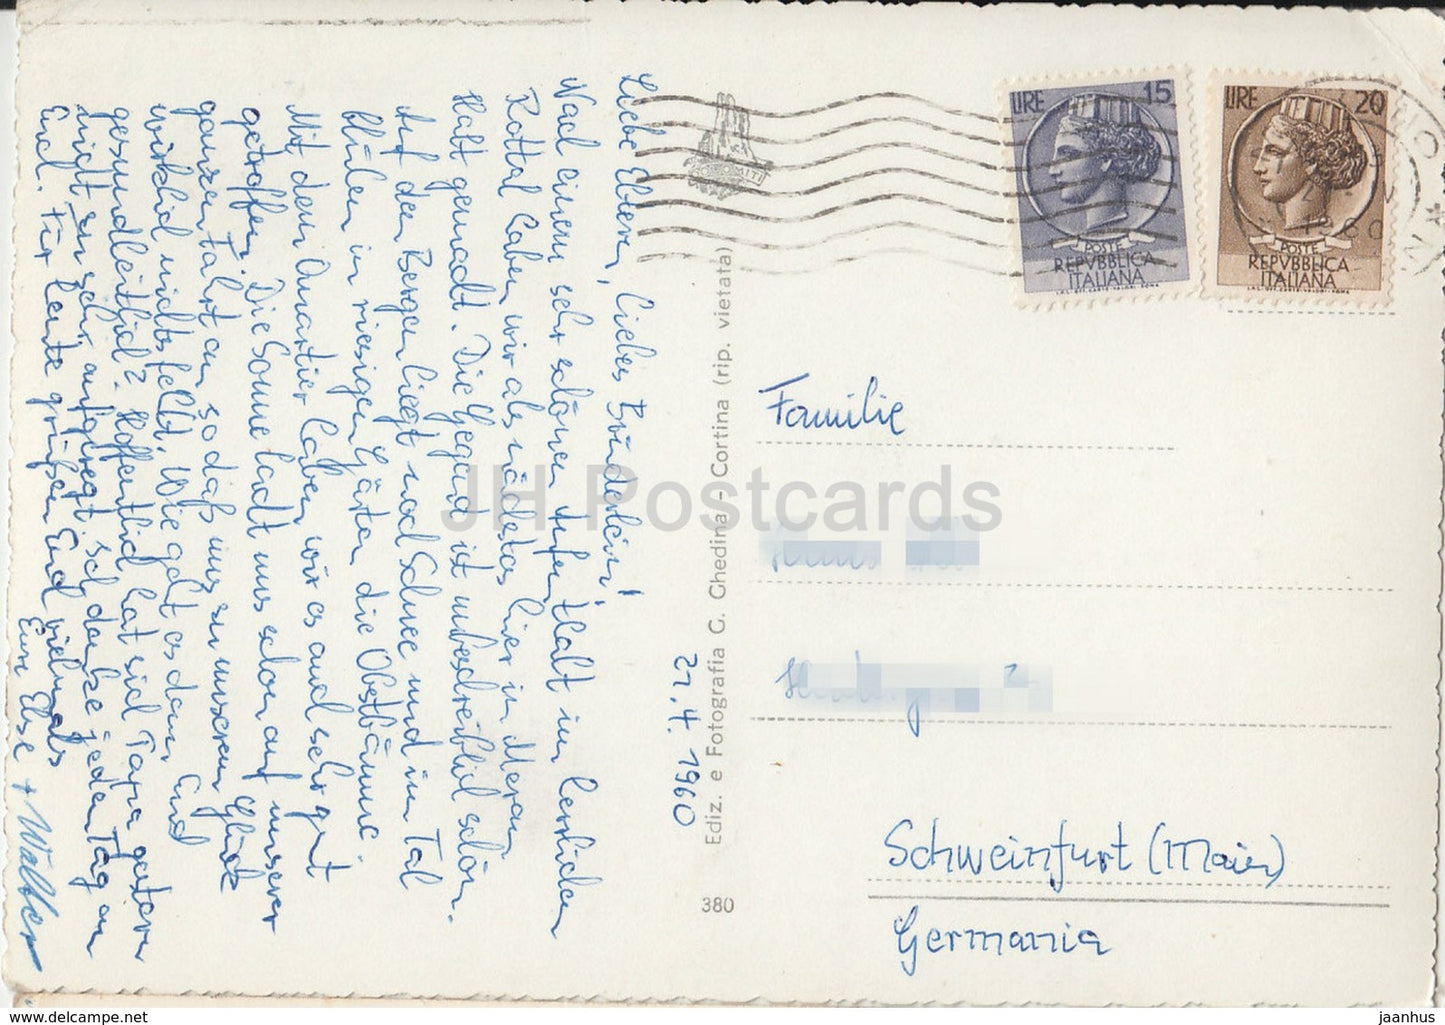 Liebe Eltern, liebes Brüderlein!
Nach einem sehr schönen Aufenthalt im herrlichen
Rottal haben wir als nächstes hier in Meran
Halt gemacht. Die Gegend ist unbeschreiblich schön.
Auf den Bergen liegt noch Schnee und im Tal
blühen in riesigen Gärten die Obstbäume.
Mit dem Quartier haben wir es auch sehr gut
getroffen. Die Sonne lacht uns schon auf unserer
ganzen Fahrt an, so daß uns zu unserem Glück
wirklich nichts fehlt. Wie geht es denn Euch
gesundheitlich? Hoffentlich hat sich Papa gestern
nicht zu sehr aufgeregt. Ich denke jeden Tag an
Euch. Für heute grüßen Euch vielmals
Eure Else + Walter
21.4.1960
Ediz. e Fotografia G. Ghedina - Cortina (rip. vietata)
380
DOLOMITI
LIRE 15
POSTE
REPVBBLICA
ITALIANA
LIRE 20
POSTE
REPVBBLICA
ITALIANA
Familie
Schweinfurt (Main)
Germania
JH Postcards
www.delcampe.net
jaanhus